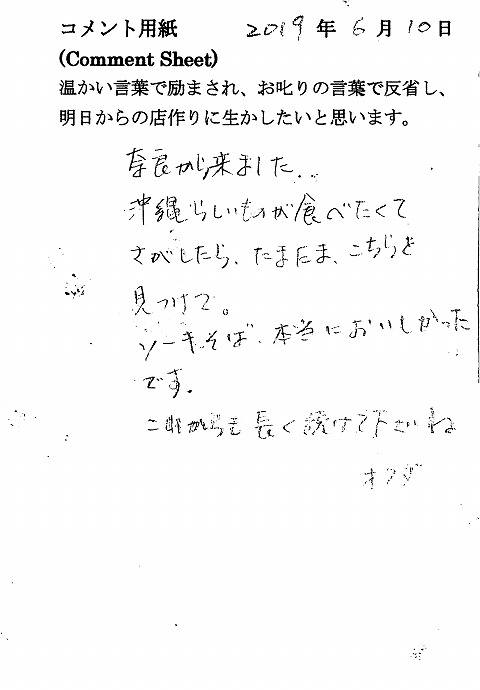 コメント用紙　2019年6月10日
(Comment Sheet)
温かい言葉で励まされ、お叱りの言葉で反省し、
明日からの店作りに生かしたいと思います。
奈良から来ました..
沖縄らしいものが食べたくて
さがしたら、たまたま、こちらを
見つけて。
ソーキそば、本当においしかった
です.
これからも長く続けて下さいね